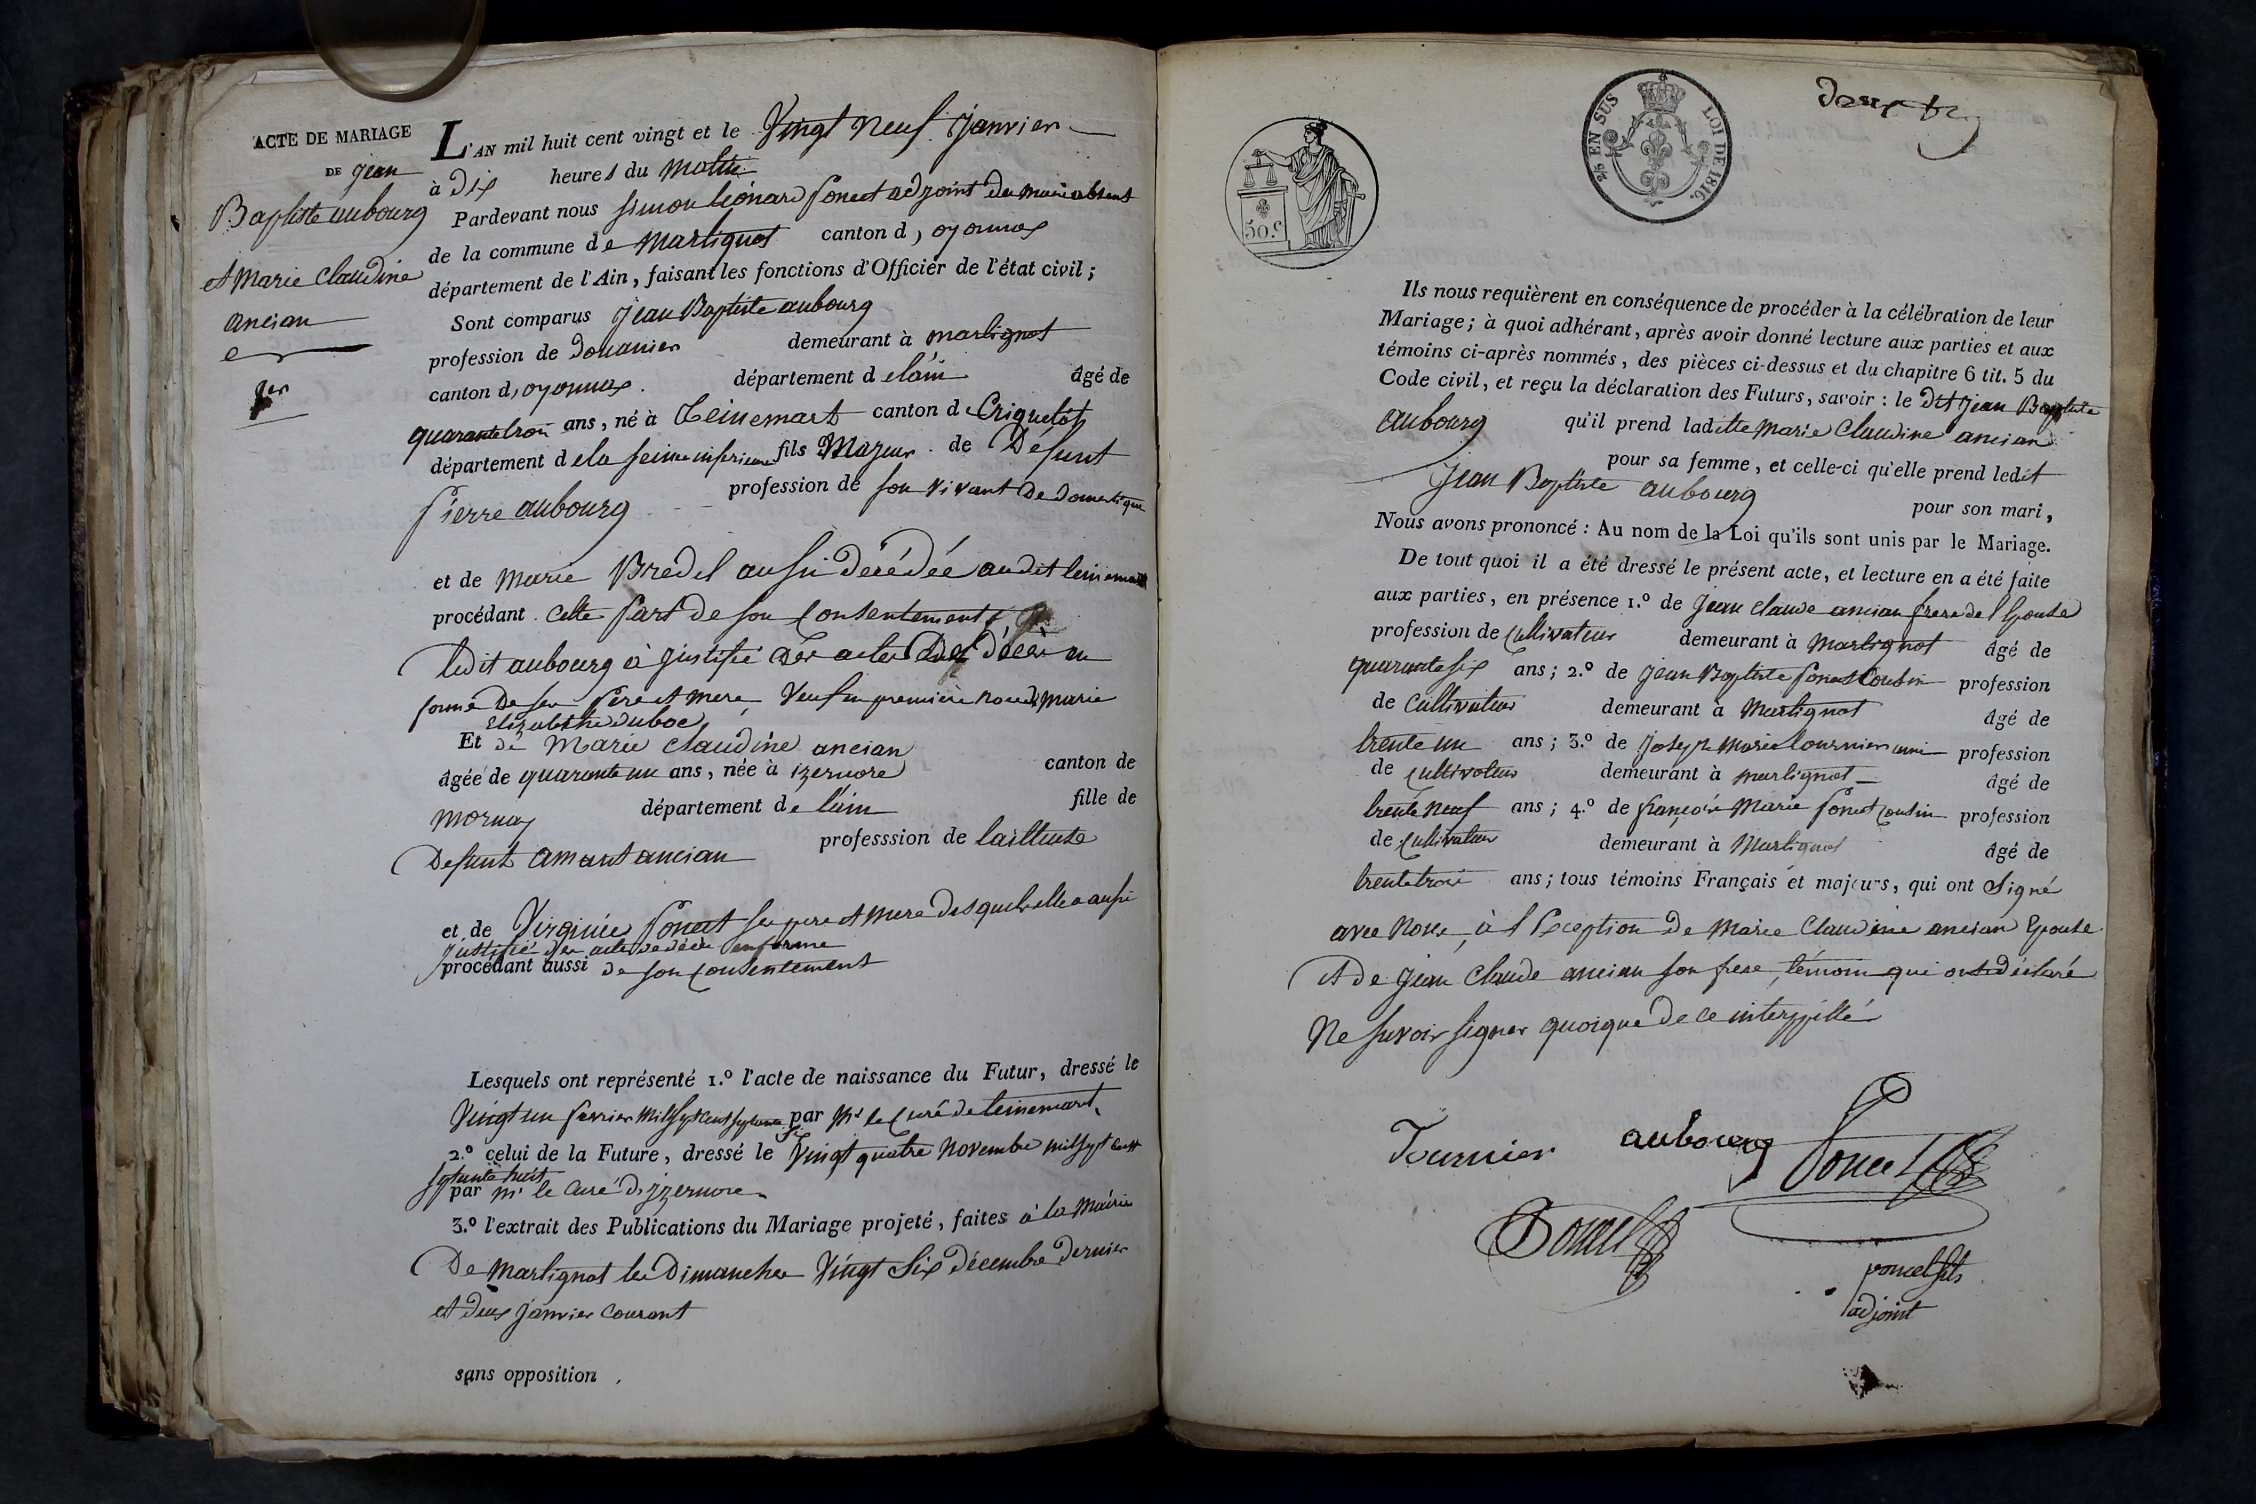 ACTE DE MARIAGE
DE jean
Baptiste aubourg
et Marie Claudine
ancian
1er
L'AN mil huit cent vingt et le Vingt neuf Janvier
à dix heures du matin
Pardevant nous simon léonard Poncet adjoint du maire absent
de la commune de Martignat canton d, oyonnax
département de l'Ain, faisant les fonctions d'Officier de l'état civil;
Sont comparus jean Baptiste aubourg
profession de douanier demeurant à martignat
canton d, oyonnax. département d elain âgé de
quarante trois ans, né à Teinemart canton de Criquetôt
département d ela seine inferieure fils Majeur de Défunt
Pierre aubourg profession de son vivant de domestique
et de Marie Bredel aussi décédée audit teinemart
procédant cette part de son consentement,
ledit aubourg à justifié des actes de décès en
forme de ses père et mere, Veuf en premiere noces marie
Elizabethe duboc
Et de Marie Claudine ancian
âgée de quarante un ans, née à izernore canton de
mornay département de l'ain fille de
Defunt amant ancian professsion de tailleuse
et de Virginie Poncet ses pere et mere desquels elle a aussi
justifié des actes de décès en forme
procédant aussi de son consentement
Lesquels ont représenté 1.º l'acte de naissance du Futur, dressé le
Vingt un fevrier mil sept cent septante six par Mr le Curé de teinemart,
2.º celui de la Future, dressé le Vingt quatre novembre mil sept cent
septante huit
par mr le Curé d'izernore
3.º l'extrait des Publications du Mariage projeté, faites à la Mairie
De Martignat les Dimanches Vingt Six décembre dernier
et deux janvier courant
sans opposition
50.c
2/5 EN SUS LOI DE 1816.
Ils nous requièrent en conséquence de procéder à la célébration de leur
Mariage; à quoi adhérant, après avoir donné lecture aux parties et aux
témoins ci-après nommés, des pièces ci-dessus et du chapitre 6 tit. 5 du
Code civil, et reçu la déclaration des Futurs, savoir : le dit jean Baptiste
aubourg qu'il prend laditte marie Claudine ancian
pour sa femme, et celle-ci qu'elle prend ledit
jean Baptiste aubourg pour son mari,
Nous avons prononcé : Au nom de la Loi qu'ils sont unis par le Mariage.
De tout quoi il a été dressé le présent acte, et lecture en a été faite
aux parties, en présence 1.º de jean claude ancian frere de l'Epouse
profession de cultivateur demeurant à Martignat âgé de
quarante six ans; 2.º de jean Baptiste Poncet Cousin profession
de Cultivateur demeurant à Martignat âgé de
trente un ans; 3.º de joseph marie tournier ami profession
de Cultivateur demeurant à martignat âgé de
trente neuf ans; 4.º de françois Marie Poncet Cousin profession
de Cultivateur demeurant à Martignat âgé de
trente trois ans; tous témoins Français et majeurs, qui ont signé
avec nous, à l'Exception de Marie Claudine ancian Epouse
et de jean Claude ancian son frere, témoin qui ont déclaré
Ne savoir signer quoique de ce interpellés
Tournier aubourg Poncet
Poncet
poncet fils
adjoint